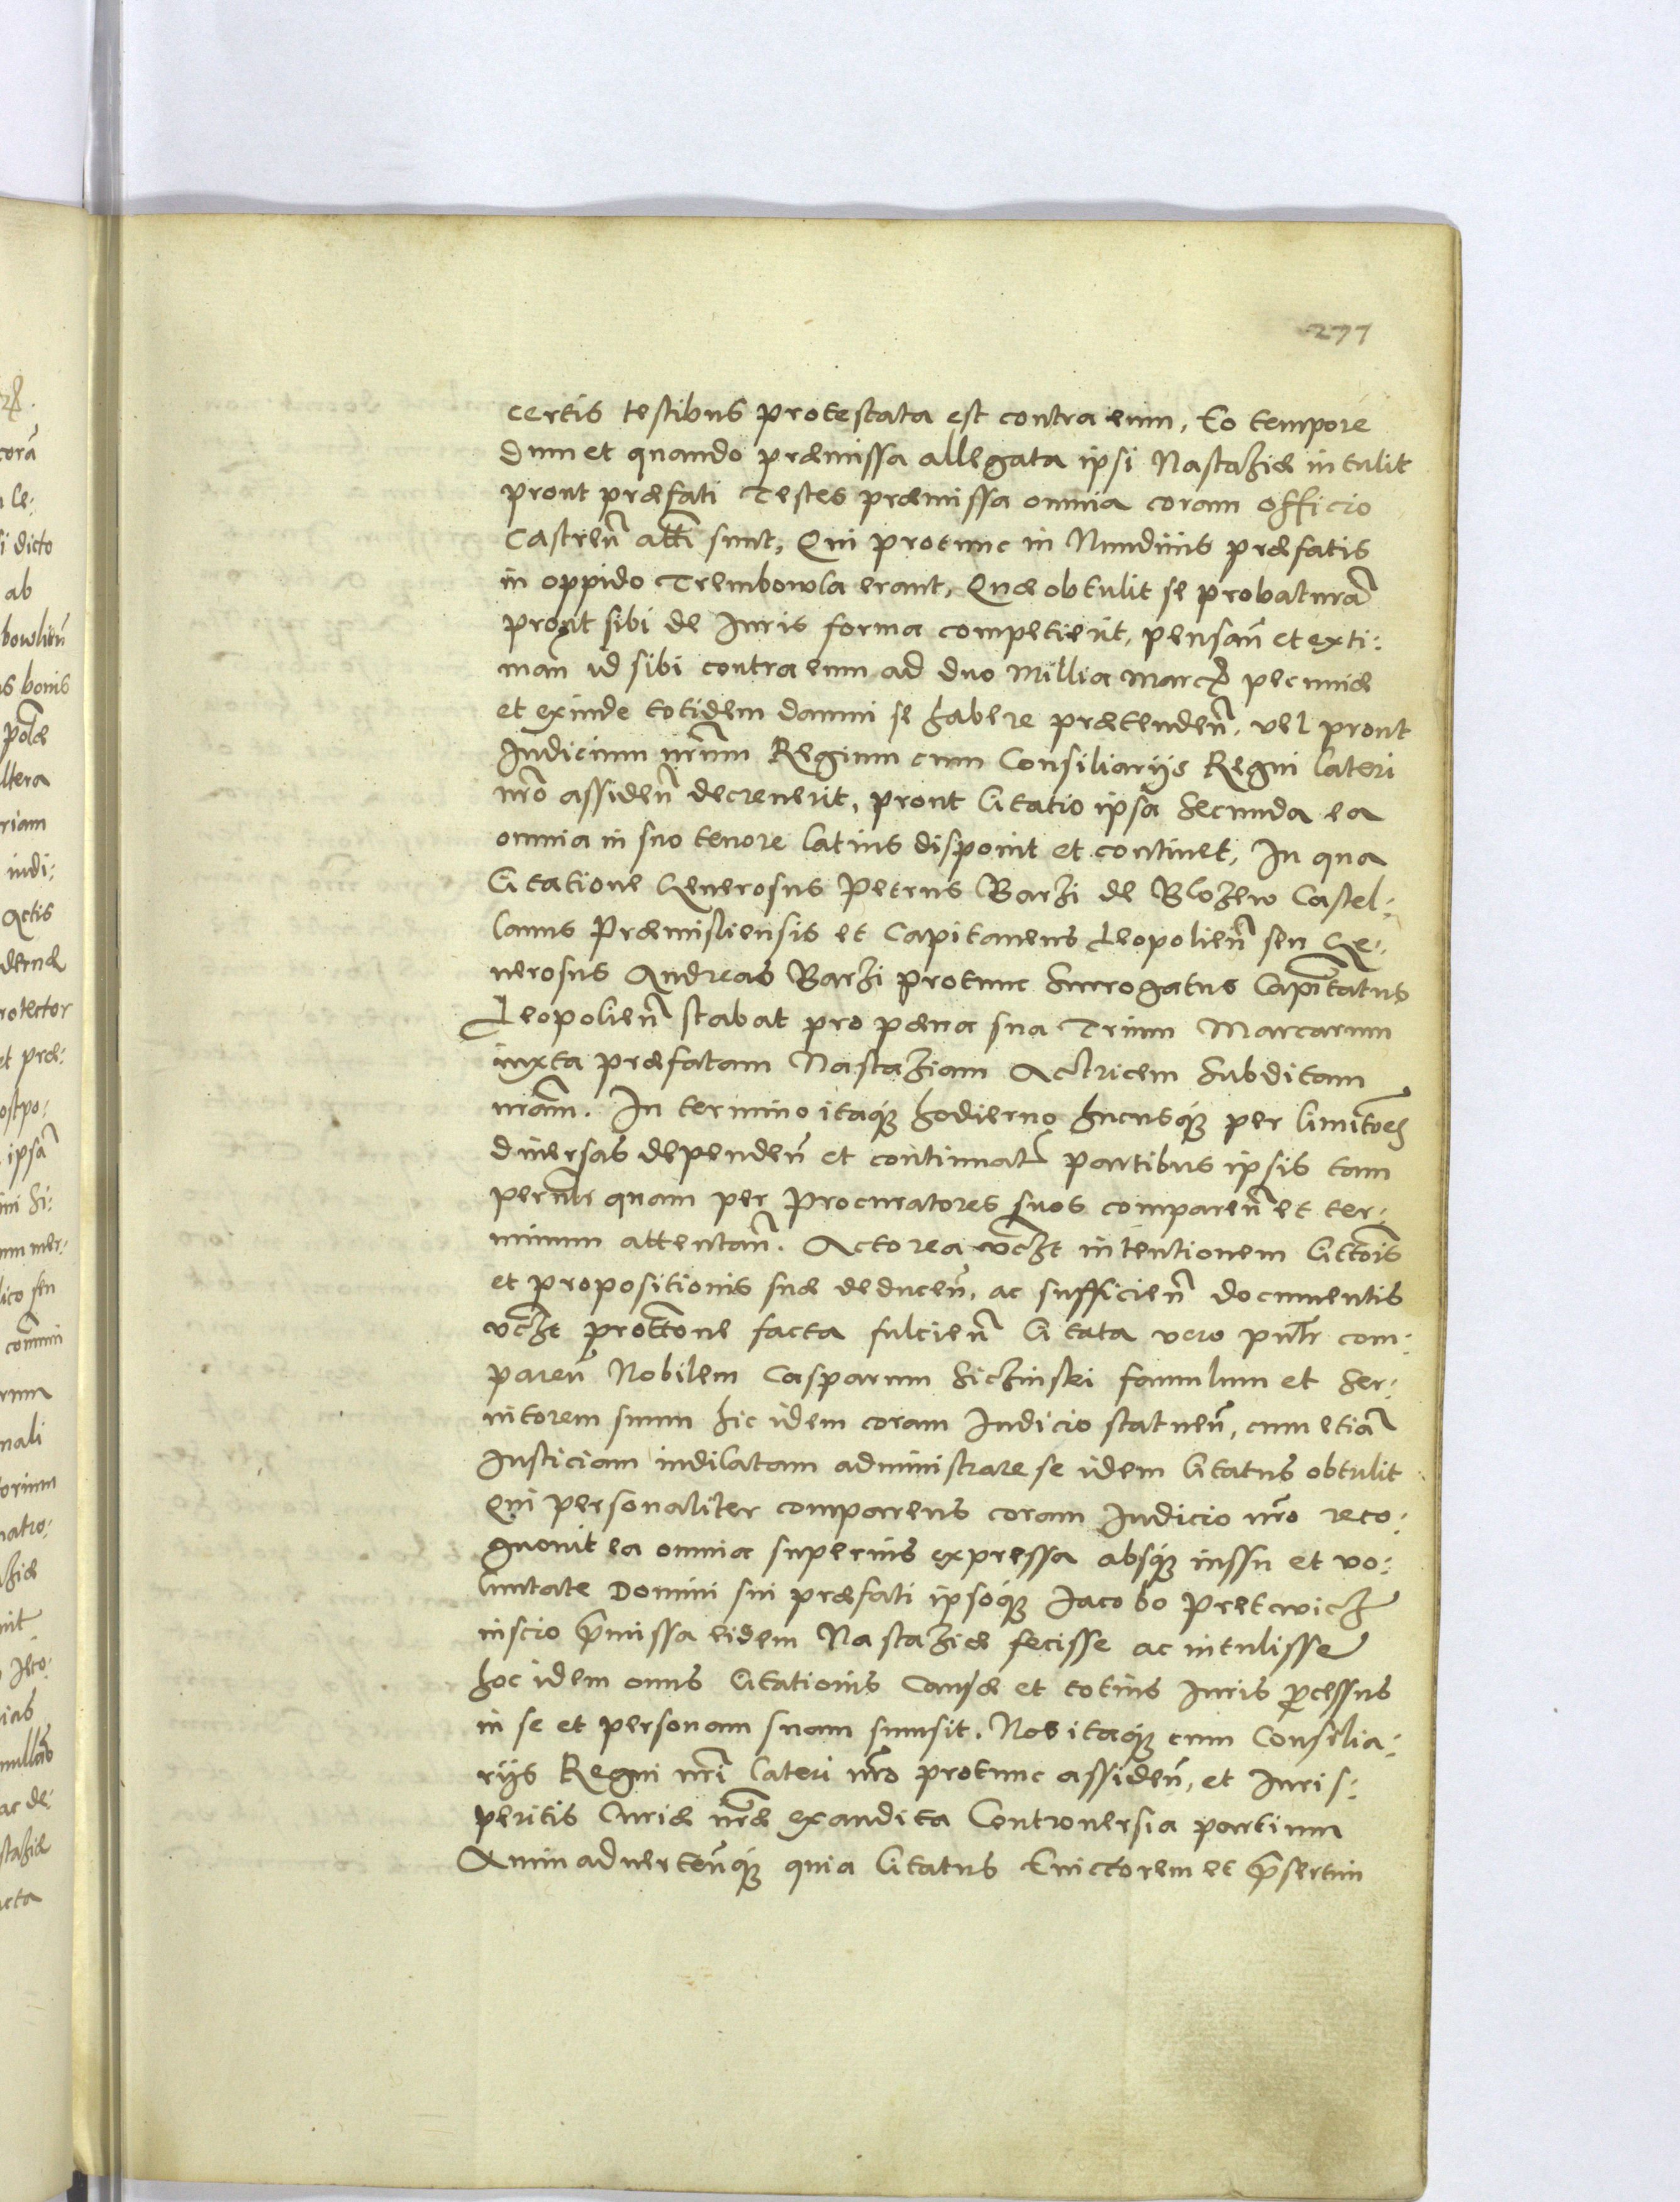 277
certis testibus protestata est contra eum, Eo tempore
dum et quando præmissa allegata ipsi Nastaziæ intulit
prout præfati Testes præmissa omnia coram officio
Castreñ attti sunt, Qui protunc in Nundinis præfatis
in oppido Trembowla erant, Quæ obtulit se probaturã
prout sibi de Iuris forma competierit, pensañ et exti:
mañ id sibi contra eum ad duo Millia Marcar pecuniæ
et exinde totidem damni se habere prætendeñ, vel prout
Iudicium nrũm Regium cum Consiliarijs Regni lateri
nrõ assideñ decreuerit, prout Citatio ipsa secunda ea
omnia in suo tenore latius disponit et continet, In qua
Citatione Generosus Petrus Barzi de Blozew Castel:
lanus Præmisliensis et Capitaneus Leopolieñ seu Ge:
nerosus Andreas Barzi protunc surrogatus Capitatus
Leopolieñ stabat pro pæna sua Trium Marcarum
iuxta præfatam Nastaziam Actricem subditam
nrãm. In termino itaq₃ hodierno hucusq₃ per limitões
diuersas dependeñ et continuat partibus ipsis tam
pernlr quam per Procuratores suos compareñ et ter:
minum attentañ. Actorea vtczt intentionem Cittõis
et propositionis suæ deduceñ, ac sufficieñ documentis
vtczt prottõne facta fulcieñ Citata vero pntr com:
pareñ Nobilem Casparum Siczinski famulum et ser:
uitorem suum hic idem coram Iudicio statueñ, cum etiã
Iusticiam indilatam administrare se idem Citatus obtulit
Qui personaliter comparens coram Iudicio nrõ reco:
gnouit ea omnia superius expressa absq₃ iussu et vo:
luntate Domini sui præfati ipsoq₃ Iacobo Pretwicz
inscio pmissa eidem Nastaziæ fecisse ac intulisse
hoc idem onus Citationis Causæ et totius Iuris pcessus
in se et personam suam sumsit. Nos itaq₃ cum Consilia:
rijs Regni nri lateri nrõ protunc assideñ, et Iuris:
peritis Curiæ nræ exaudita Controuersia partium
Animaduerteñq₃ quia Citatus Euictorem et psertim